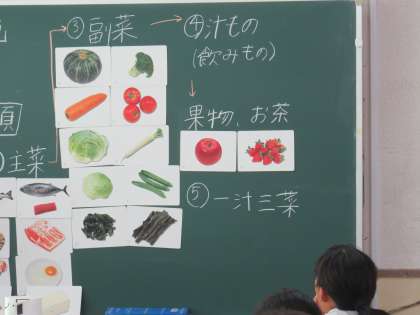 ③副菜
④汁もの
(飲みもの)
果物、お茶
主菜
⑤一汁三菜